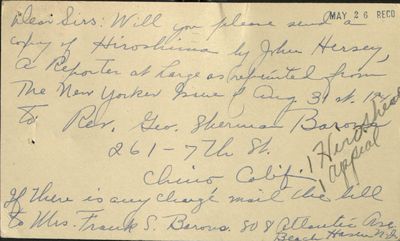 MAY 26 RECD
Dear Sirs: Will you please send a
copy of Hiroshima by John Hersey,
a Reporter at Large as reprinted from
The New Yorker Issue of Aug 31st.
To Rev. Geo. Sherman Barons
261-7th St.
Chino Calif.
1 Hiroshima
1 appeal
If there is any charge mail the bill
to Mrs. Frank S. Barons. 808 Atlantic Ave
Beach Haven N.J.